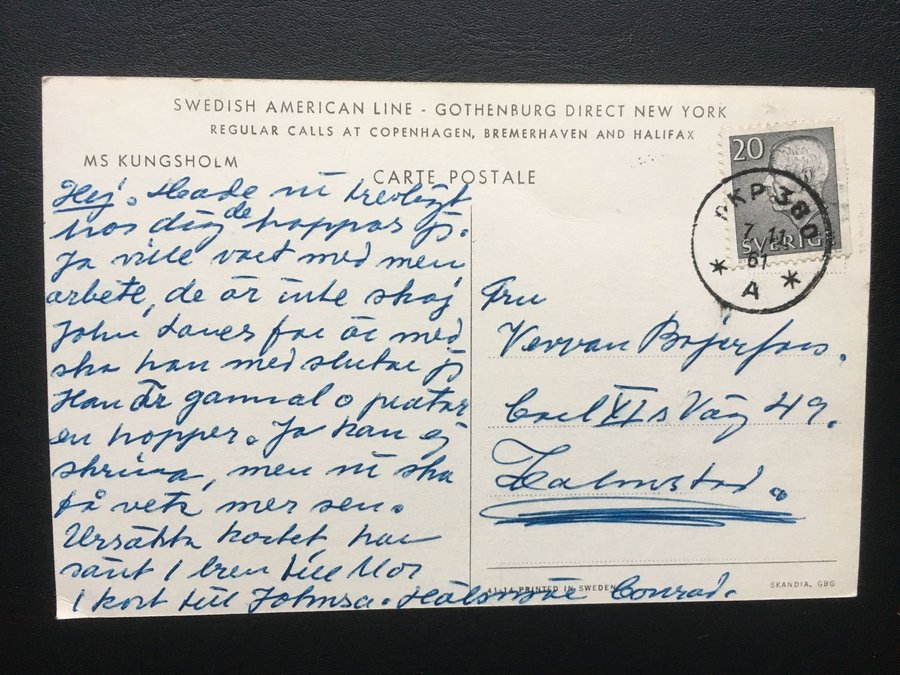 SWEDISH AMERICAN LINE - GOTHENBURG DIRECT NEW YORK
REGULAR CALLS AT COPENHAGEN, BREMERHAVEN AND HALIFAX
MS KUNGSHOLM
CARTE POSTALE
20
SVERIGE
PKP 380
7. 11.
61
A
Hej. Hade ni trevligt
hos dig de hoppas jg.
Ja ville vart med men
arbete, de är inte skoj
John är med
ska han med slutar jg
Han är gammal o pratar
en hopper. Ja kan ej
skriva, men ni ska
få veta mer sen.
Ursäkta kortet har
sänt 1 brev till Mor
1 kort till Conrad.
Fru
Carl XI s Väg 49.
Halmstad.
41-14 PRINTED IN SWEDEN
SKANDIA, GBG